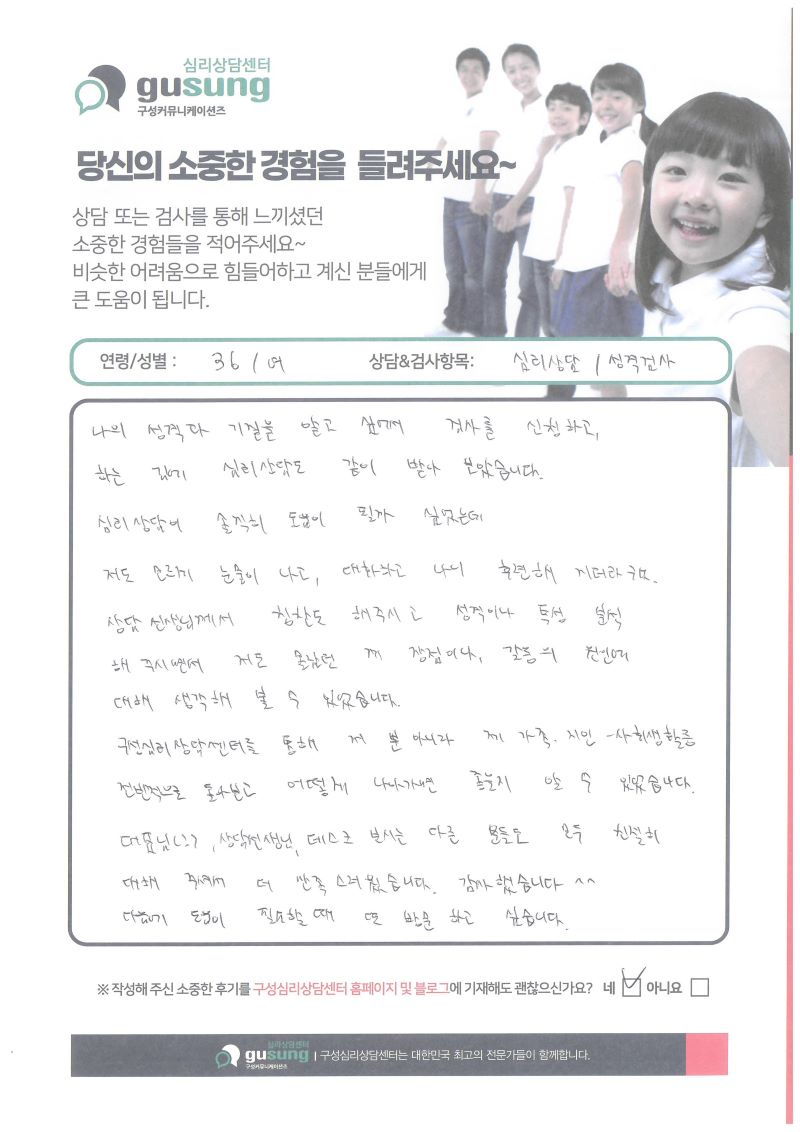 심리상담센터
gusung
구성커뮤니케이션즈
당신의 소중한 경험을 들려주세요~
상담 또는 검사를 통해 느끼셨던
소중한 경험들을 적어주세요~
비슷한 어려움으로 힘들어하고 계신 분들에게
큰 도움이 됩니다.
연령/성별 : 36 / 여 상담&검사항목: 심리상담 / 성격검사
나의 성격과 기질을 알고 싶어서 검사를 신청하고,
하는 김에 심리상담도 같이 받아 보았습니다.
심리상담이 솔직히 도움이 될까 싶었는데
저도 모르게 눈물이 나고, 대화하고 나니 후련해 지더라구요.
상담 선생님께서 칭찬도 해주시고 성격이나 특성 분석
해 주시면서 저도 몰랐던 제 장점이나, 갈등의 원인에
대해 생각해 볼 수 있었습니다.
구성심리상담센터를 통해 저 뿐 아니라 제 가족·지인·사회생활을
전반적으로 돌아보고 어떻게 나아가면 좋을지 알 수 있었습니다.
대표님(?), 상담선생님, 데스크 보시는 다른 분들도 모두 친절히
대해 주셔서 더 만족스러웠습니다. 감사했습니다 ^^
다음에 도움이 필요할 때 또 방문 하고 싶습니다.
※ 작성해 주신 소중한 후기를 구성심리상담센터 홈페이지 및 블로그에 기재해도 괜찮으신가요? 네 아니요
심리상담센터
gusung
구성커뮤니케이션즈
구성심리상담센터는 대한민국 최고의 전문가들이 함께합니다.